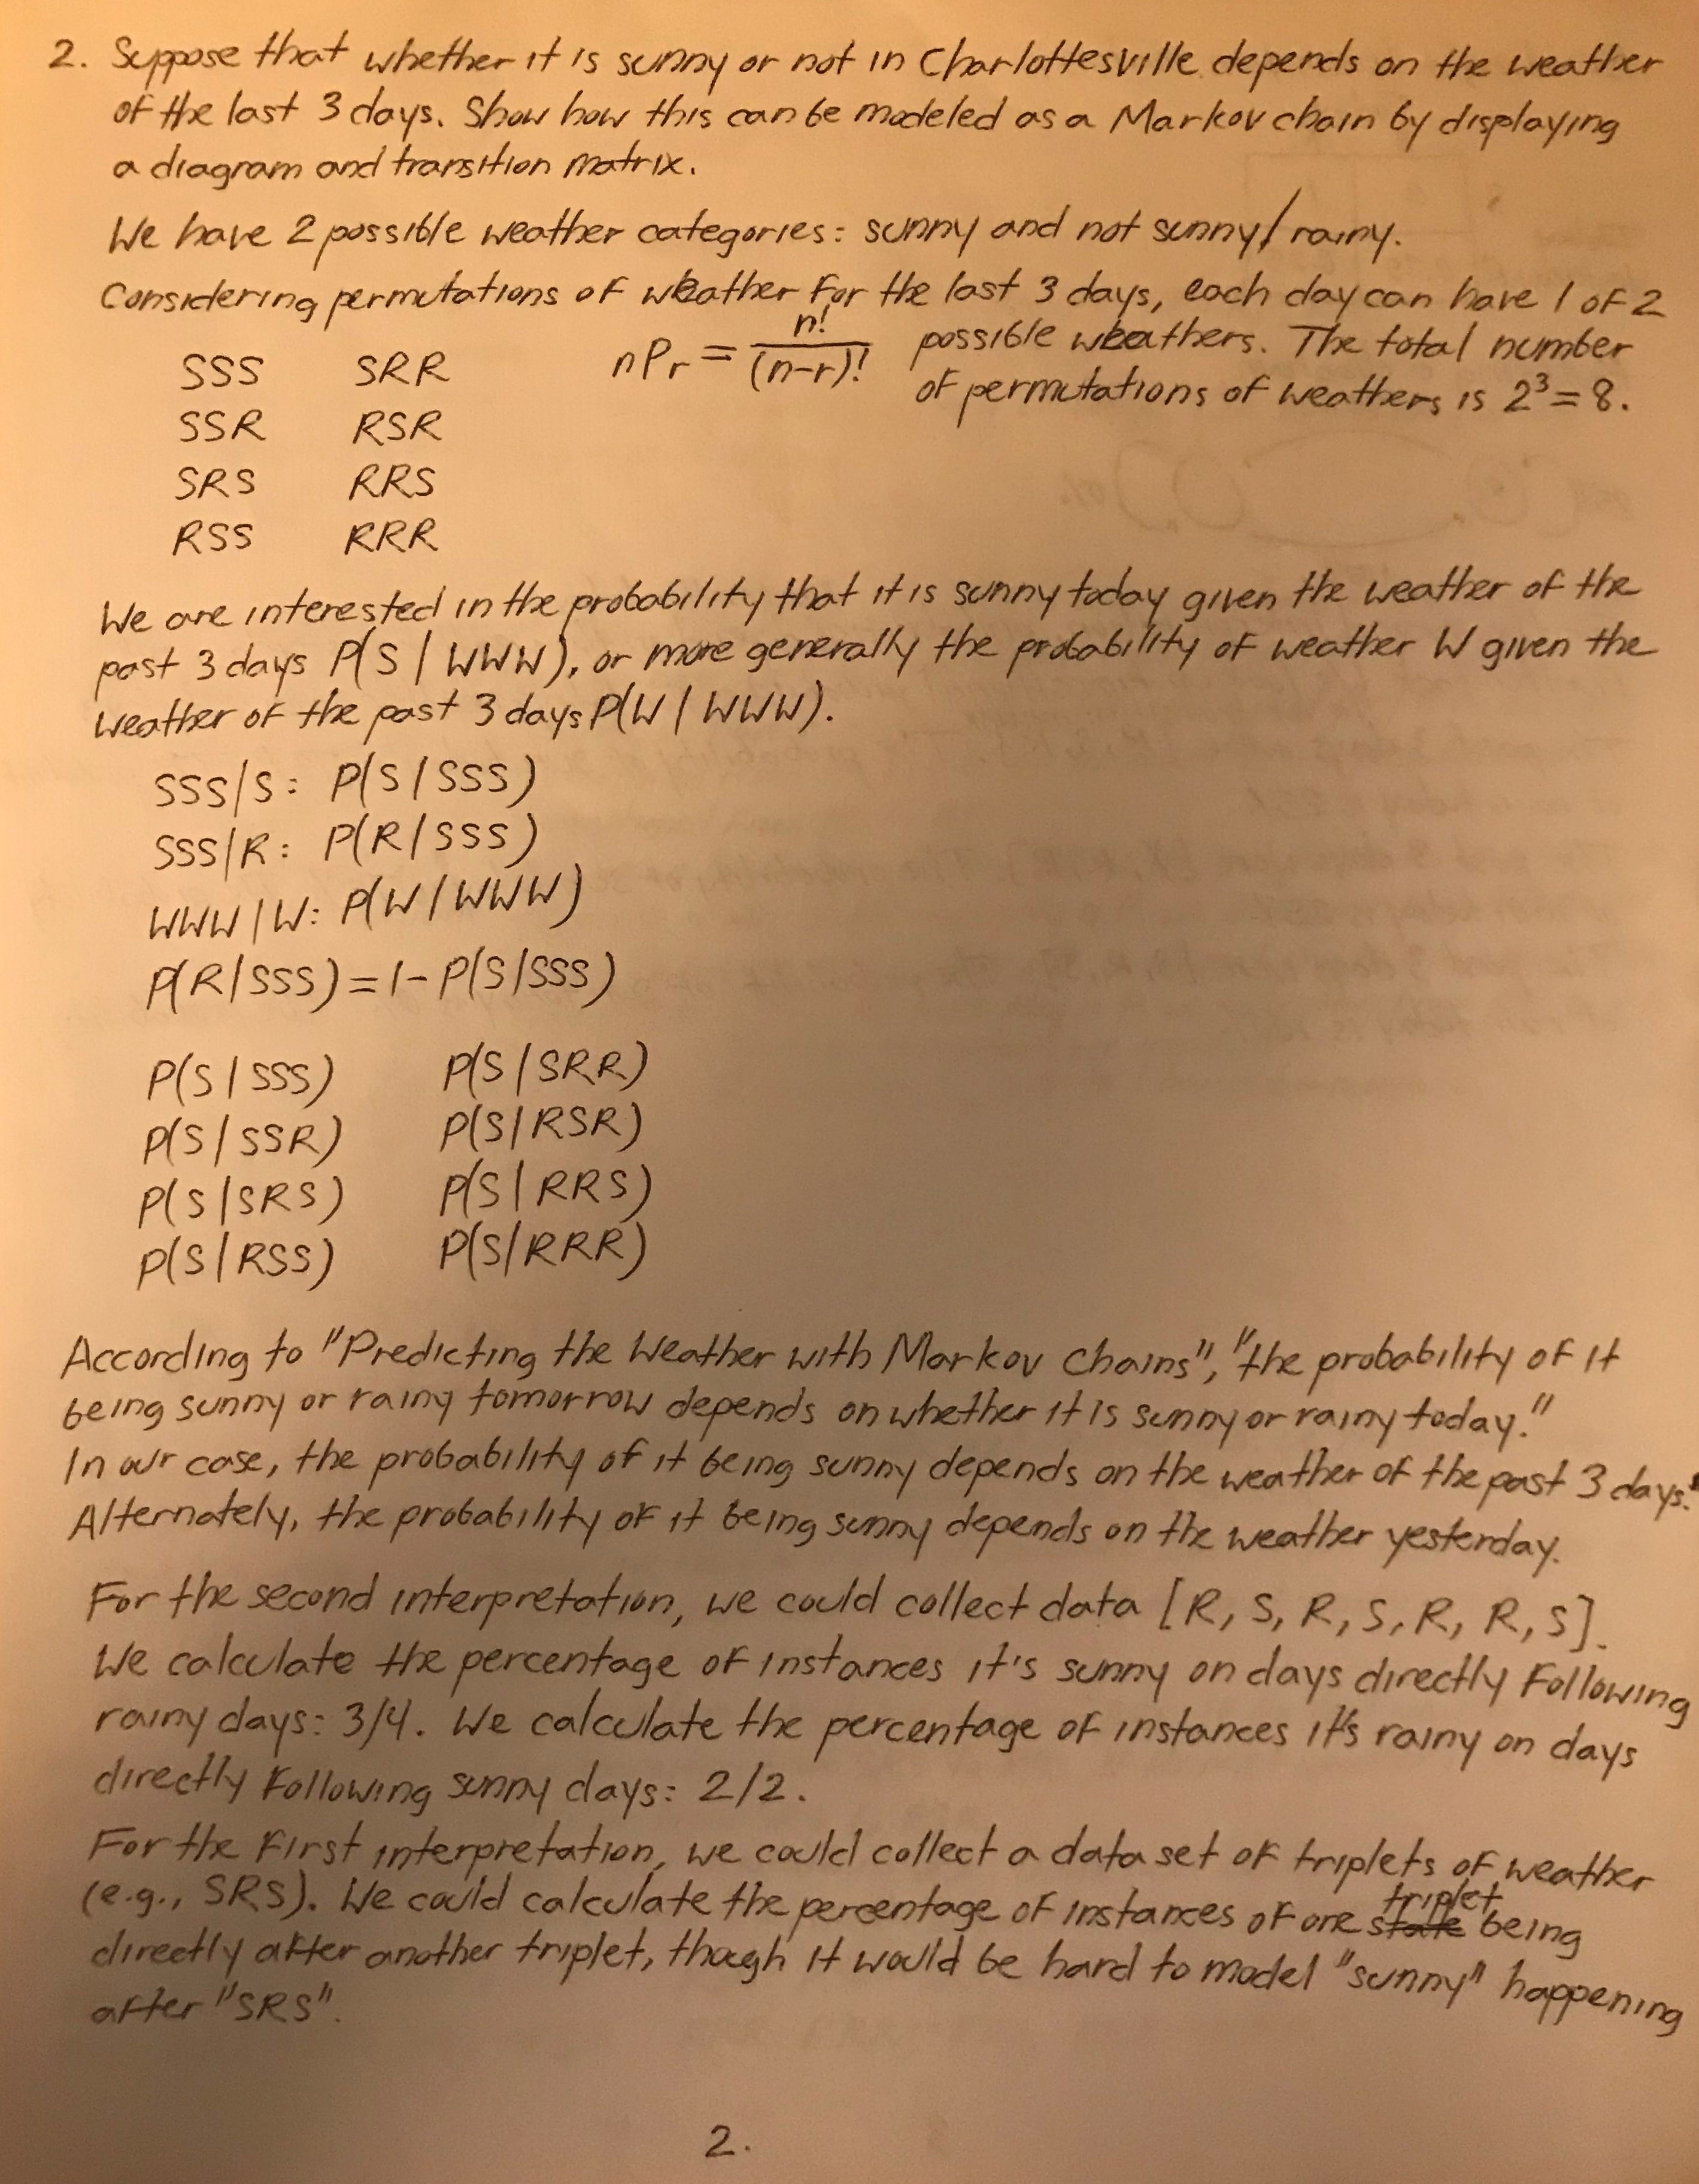 2. Suppose that whether it is sunny or not in Charlottesville depends on the weather
of the last 3 days. Show how this can be modeled as a Markov chain by displaying
a diagram and transition matrix.
We have 2 possible weather categories: sunny and not sunny/rainy.
Considering permutations of weather for the last 3 days, each day can have 1 of 2
possible weathers. The total number
of permutations of weathers is 2³ = 8.
nPr = n!/(n-r)!
SSS SRR
SSR RSR
SRS RRS
RSS RRR
We are interested in the probability that it is sunny today given the weather of the
past 3 days P(S | WWW), or more generally the probability of weather W given the
weather of the past 3 days P(W | WWW).
SSS|S: P(S | SSS)
SSS|R: P(R | SSS)
WWW|W: P(W | WWW)
P(R|SSS) = 1 - P(S|SSS)
P(S | SSS) P(S | SRR)
P(S | SSR) P(S | RSR)
P(S | SRS) P(S | RRS)
P(S | RSS) P(S | RRR)
According to "Predicting the Weather with Markov Chains", "the probability of it
being sunny or rainy tomorrow depends on whether it is sunny or rainy today."
In our case, the probability of it being sunny depends on the weather of the past 3 days."
Alternately, the probability of it being sunny depends on the weather yesterday.
For the second interpretation, we could collect data [R, S, R, S, R, R, S].
We calculate the percentage of instances it's sunny on days directly following
rainy days: 3/4. We calculate the percentage of instances it's rainy on days
directly following sunny days: 2/2.
For the first interpretation, we could collect a data set of triplets of weather
(e.g., SRS). We could calculate the percentage of instances of one state triplet being
directly after another triplet, though it would be hard to model "sunny" happening
after "SRS".
2.